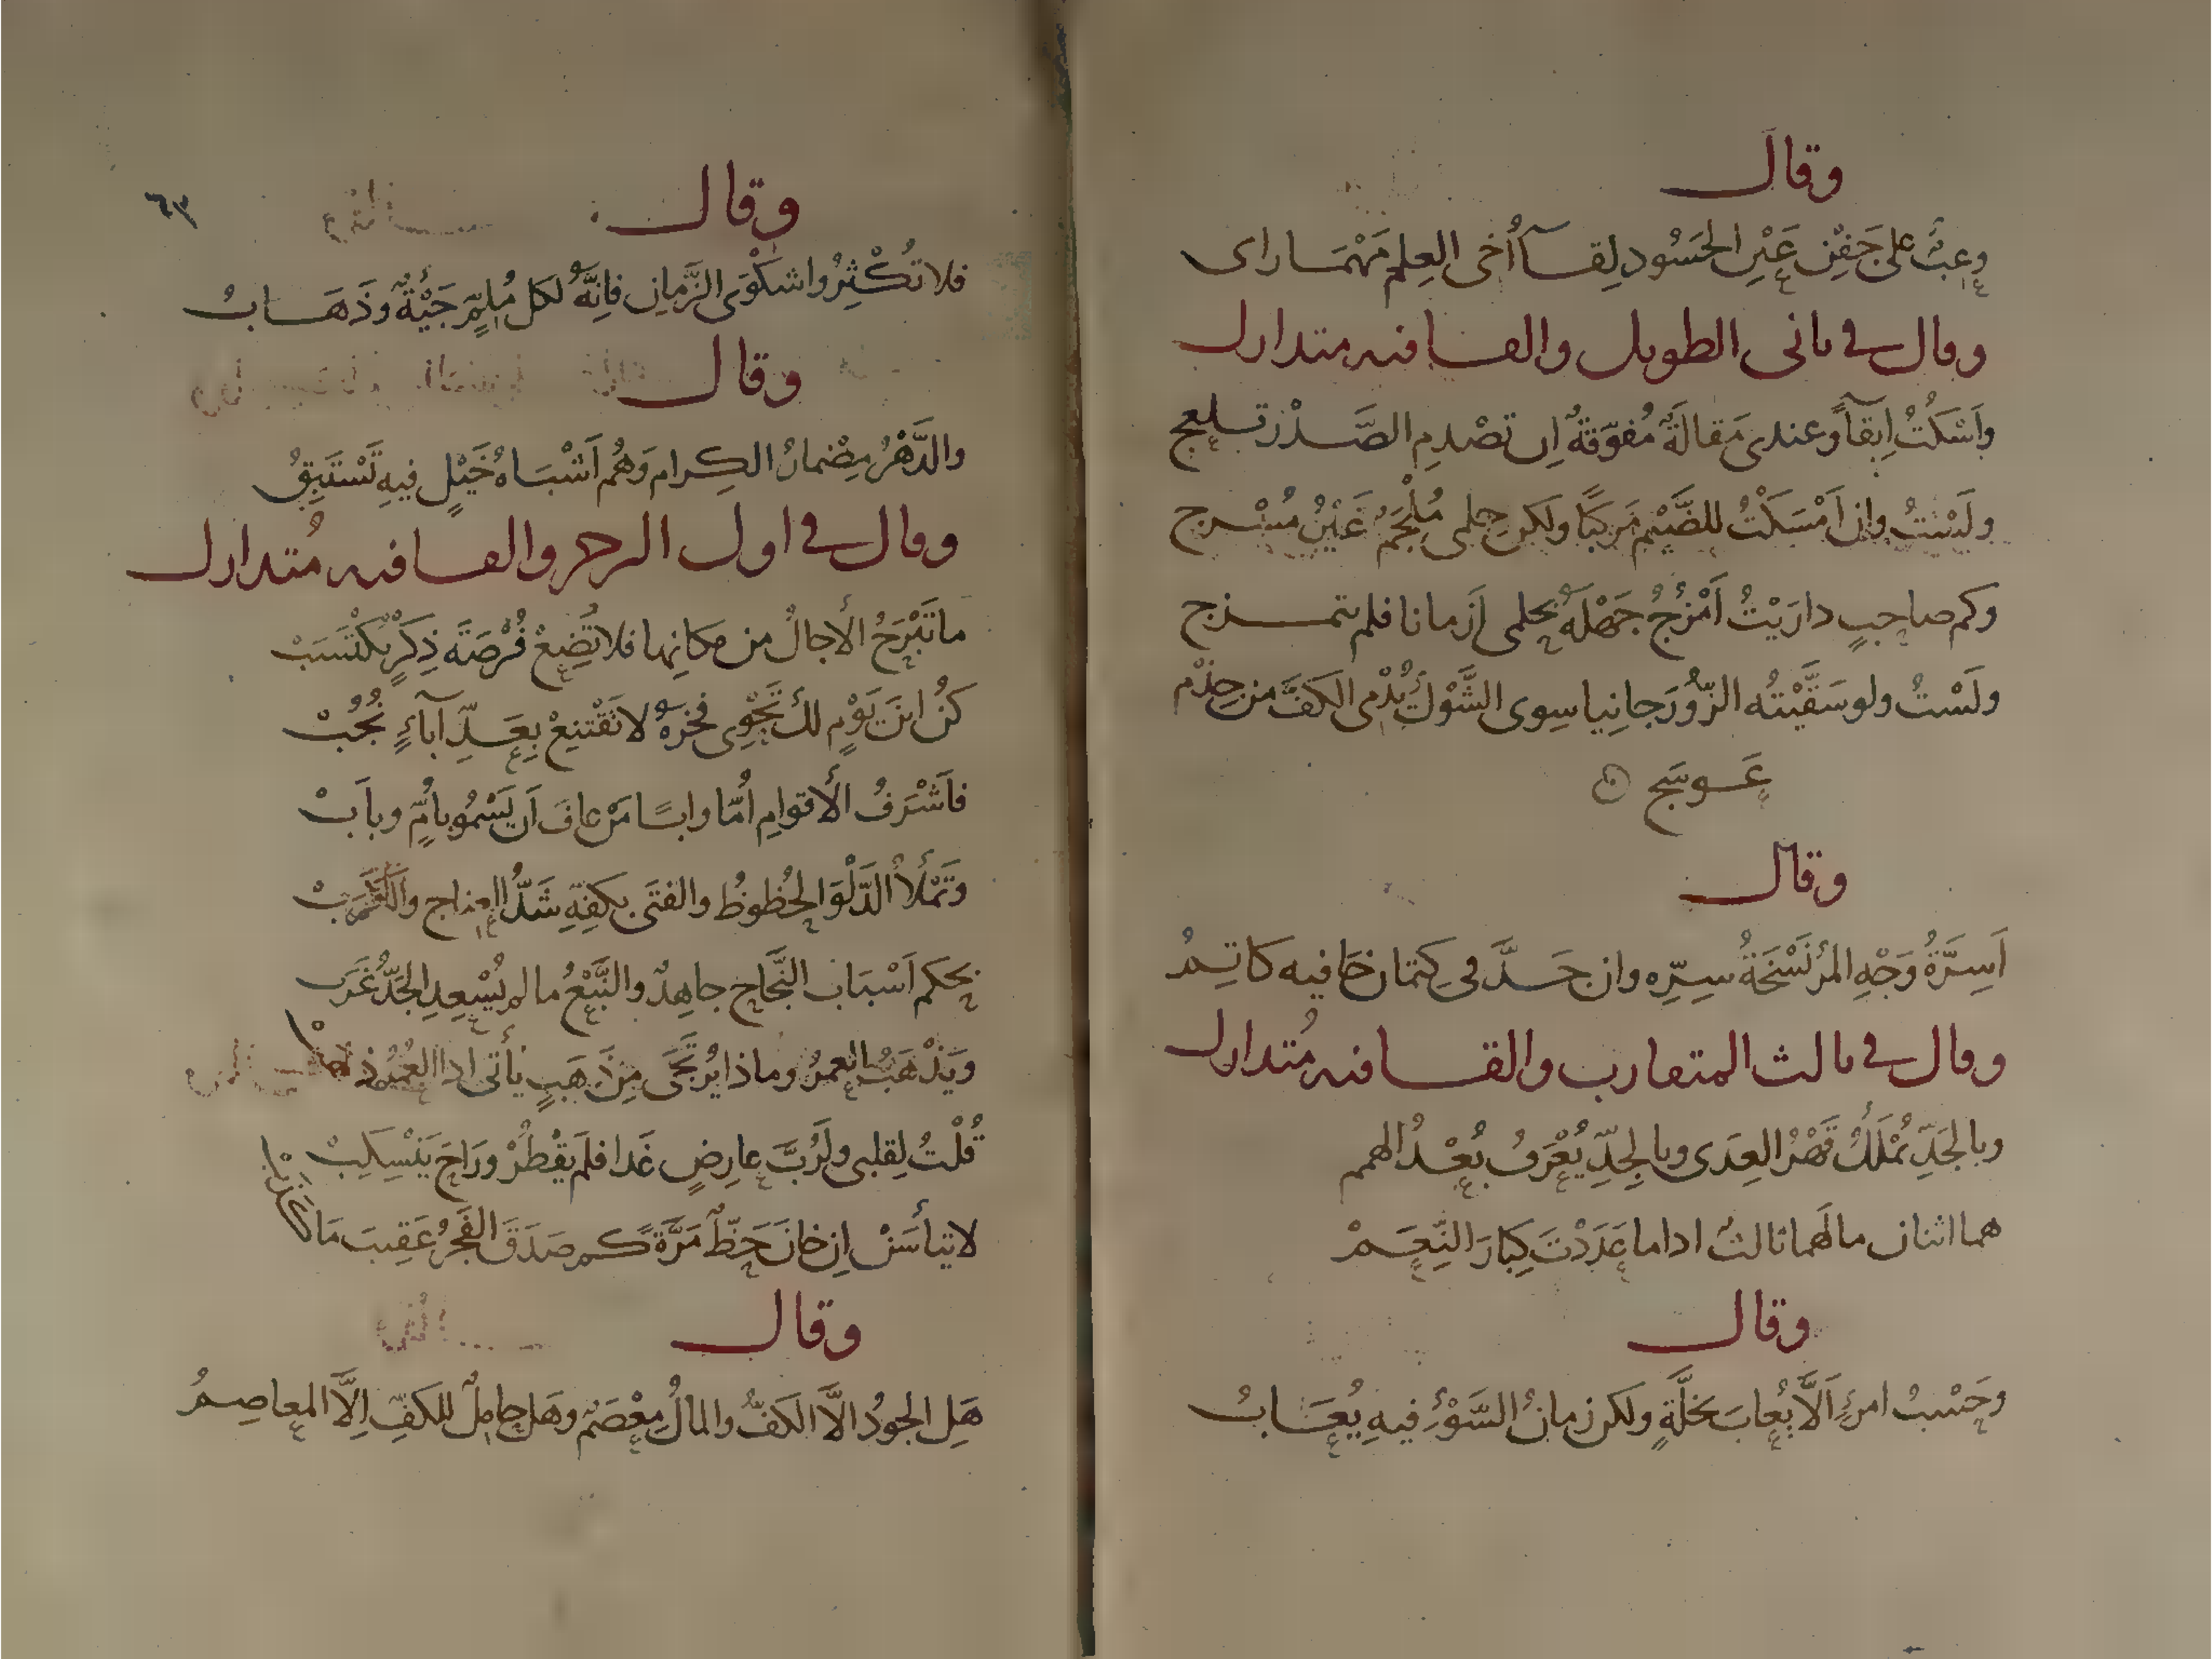 وقال
وعبْءٌ على جَفْنِ عَيْنِ الحَسُود لِقَآ أُخى العِلم مَهْمَا راى
وقال فى ثانى الطويل والقافيه متدارك
وَاَسْكُتُ اِبقآءً وعندى مَقالَةٌ مُفَوَّقةٌ اِن تَصْدمِ الصَّدْرَ تسلعج
ولَيْسَتُ وان اَمْسَكْتُ للضَّيْمِ مَركبًا ولكن حلمى مُلْجَمٌ غَيْرُ مُسْرج
وكم صاحِبٍ دارَيْتُ اَمْزُجُ جَهْلَهُ بحلمى اَزمانا فلم يتمزج
ولَسْتُ ولو سَقَّيْتُه الزُّورَ جانِيا سِوى الشَّوْكِ يُدْمى الكَفَّ من جِذْم
عَوسَج
وقال
اَسِرَّةُ وَجْهِ المرْ نُسْخَةُ سِرِّه وان جَدَّ فى كِتمان خافيه كاتِمُ
وقال فى ثالث المتقارب والقافيه مُتدارك
وبالجَدِّ تُمْلَكُ قَهْرُ العِدَى وبالجِدِّ يُعْرَفُ بُعْدُ الهمم
هما اثنان مالَهما ثالثٌ اداما عَدَدْتَ كِبارَ النِّعَمْ
وقال
وحَسْبُ امرءٍ اَلَّا يُعابَ بخَلَّةٍ ولكن زمانُ السَّوْءِ فيهِ يُعَابُ
٦٣
وقال
فلا تُكْثِرُوا شكْوَى الزَّمانِ فاِنَّهُ لكل مُلِمٍّ جَيْئةٌ وذَهَابُ
وقال
والدَّهْرُ مِضْمارُ الكِرام وَهُم اَشْبَاهُ خَيْلٍ فيهِ تَسْتَبِقُ
وقال فى اول الرجز والقافيه مُتدارك
ما تَبْرَحُ الأجالُ من مكانِها فلا تُضِعْ فُرْصَةَ ذِكْرٍ يُكْتَسَبْ
كُن ابنَ يَوْمٍ لكَ تَحْوِى فخرَهُ لا تَقْتنِعْ بِعَدِّ آباءٍ نُجُبْ
فاَشْرَفُ الأقوامِ اُمّا وابًا مَنْ عافَ اَن يَسْمُو بأمٍّ وباَبْ
وتَمْلأُ الدَّلْوَ الحُظوظُ والفتَى بكفِّهِ شَدُّ العِناج والكَرَبْ
بحكم اَسْبَابِ النَّجَاحِ جاهِدٌ والنَّبْعُ ما لم يُسْعِدِ الجَدُّ غَرَبْ
ويَذْهَبُ العمرُ وماذا يُرتَجَى مِن ذَهَبٍ يأتى اذا العُمْرُ ذهبْ
قُلْتُ لِقلبى ولَرُبَّ عارِضٍ غَدا فلَم يَقْطُرْ ورَاحَ يَنْسِكِبْ
لا تيأسَنْ اِن خانَ حَظٌّ مَرَّةً كم صَدَقَ الفَجْرُ عَقِيبَ مَا كذبْ
وقال
هَلِ الجودُ الاَّ الكَفُّ والمالُ مِعْصَمٌ وهَل حامِلٌ للكَفِّ اِلَّا المعاصِمُ